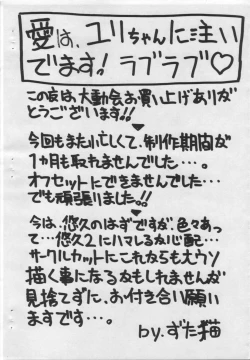 愛は、ユリちゃんに注い
でます! ラブラブ♡
この度は、大動会お買い上げありが
とうございます!!
今回もまた忙しくて、制作期間が
1か月も取れませんでした…。
オフセットにできませんでした…
でも頑張りました。!!
今は、悠久のはずですが、色々あっ
て…悠久2にハマレるか心配…
サークルカットにこれからも大ウソ
描く事になるかもしれませんが
見捨てずに、お付き合い願い
ますです…。
by.ずた猫